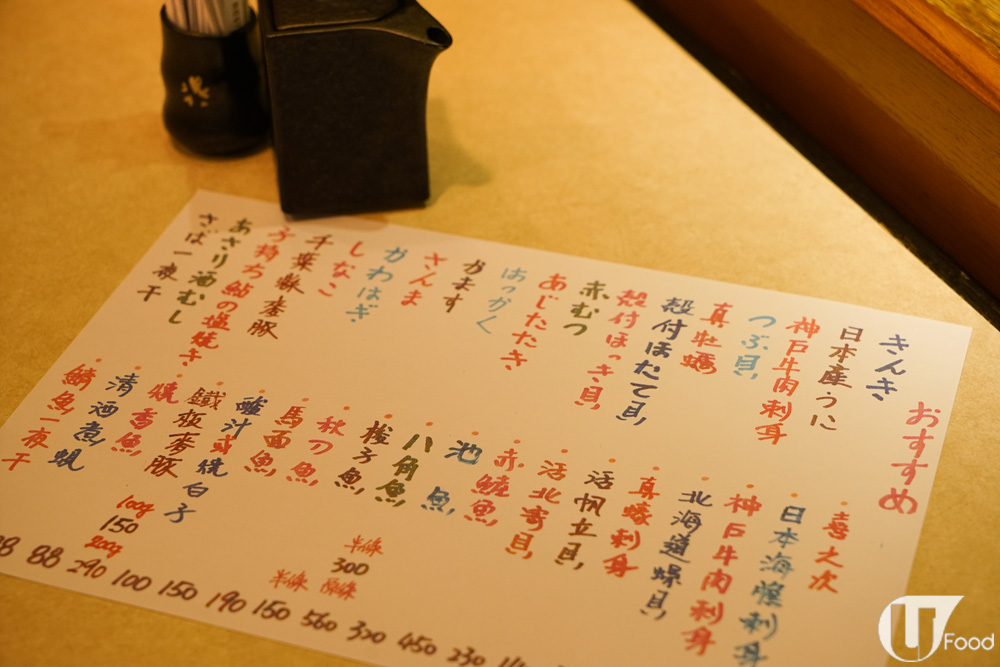 おすすめ
きんき
・喜之次
日本産うに
・日本海膽刺身
神戸牛肉刺身
・神戸牛肉刺身
つぶ貝
・北海道螺貝
真牡蠣
・真蠔刺身
殻付ほたて貝
・活帆立貝
殻付ほっき貝
・活北寄貝
あじたたき
・池魚
赤むつ
・赤鯥魚
はっかく
・八角魚
かます
・梭子魚
さんま
・秋刀魚
かわはぎ
・馬面魚
しなこ
千葉豚
子持ち鮎の塩焼き
・燒香魚
あさり酒むし
・清酒煮蜆
さば一夜干
・鯖魚一夜干
半條
300
半條
原條
100g
150
200g
88
88
290
100
150
190
150
560
320
450
230
U Food